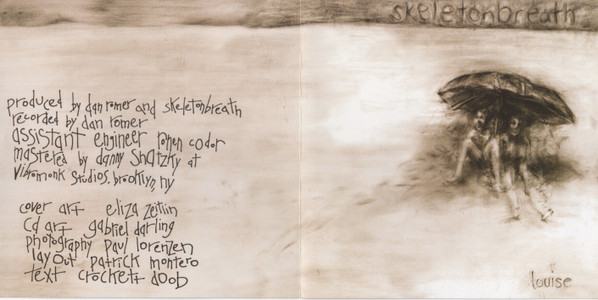 skeletonbreath
produced by dan romer and skeletonbreath
recorded by dan romer
assistant engineer romen codor
mastered by danny shatzky at
vibromonk studios, brooklyn, ny
cover art eliza zeitlin
cd art gabriel darling
photography paul lorenzen
layout patrick montero
text crockett doob
louise